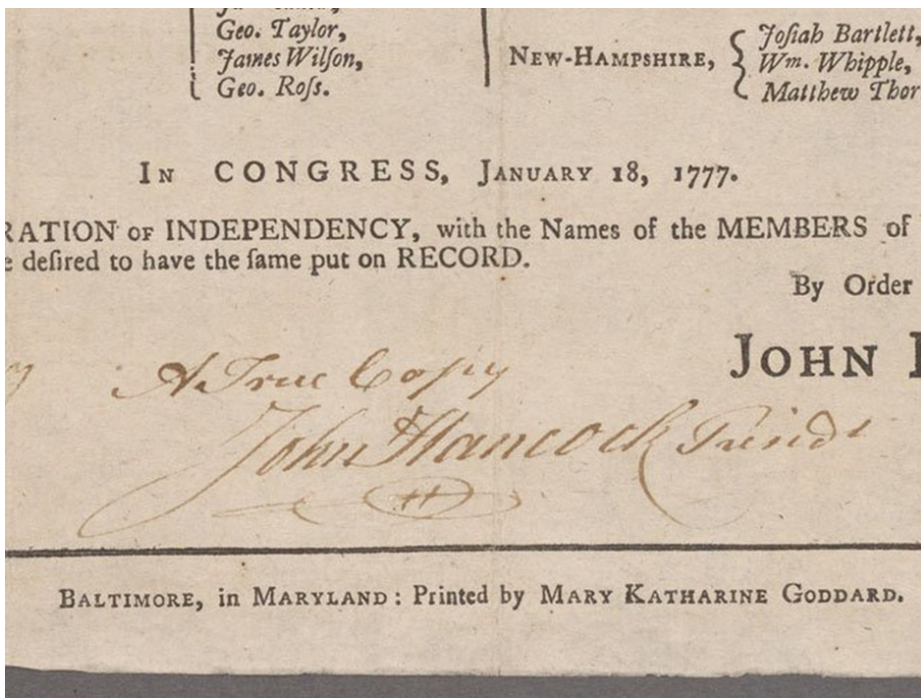 Geo. Taylor,
James Wilſon,
Geo. Roſs.
NEW-HAMPSHIRE,
Joſiah Bartlett,
Wm. Whipple,
Matthew Thor
IN CONGRESS, JANUARY 18, 1777.
RATION OF INDEPENDENCY, with the Names of the MEMBERS of
e deſired to have the ſame put on RECORD.
By Order
JOHN H
A True Copy
John Hancock Presidt
BALTIMORE, in MARYLAND: Printed by MARY KATHARINE GODDARD.